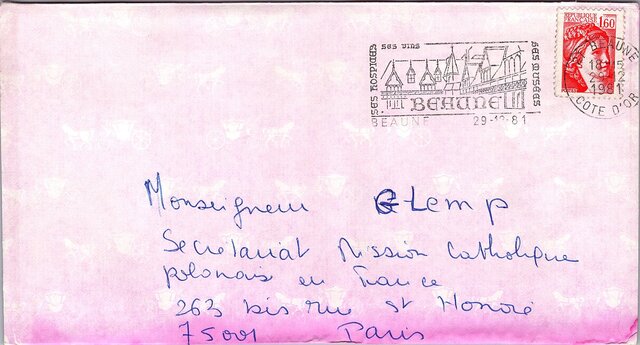 SES VINS
SES HOSPICES
SES MUSÉES
BEAUNE
BEAUNE 29-12-81
REPUBLIQUE
FRANCAISE
1,60
BEAUNE
18H15
29-12
1981
COTE D'OR
Monseigneur Glemp
Secrétariat Mission Catholique
polonais en France
263 bis rue st Honoré
75001 Paris